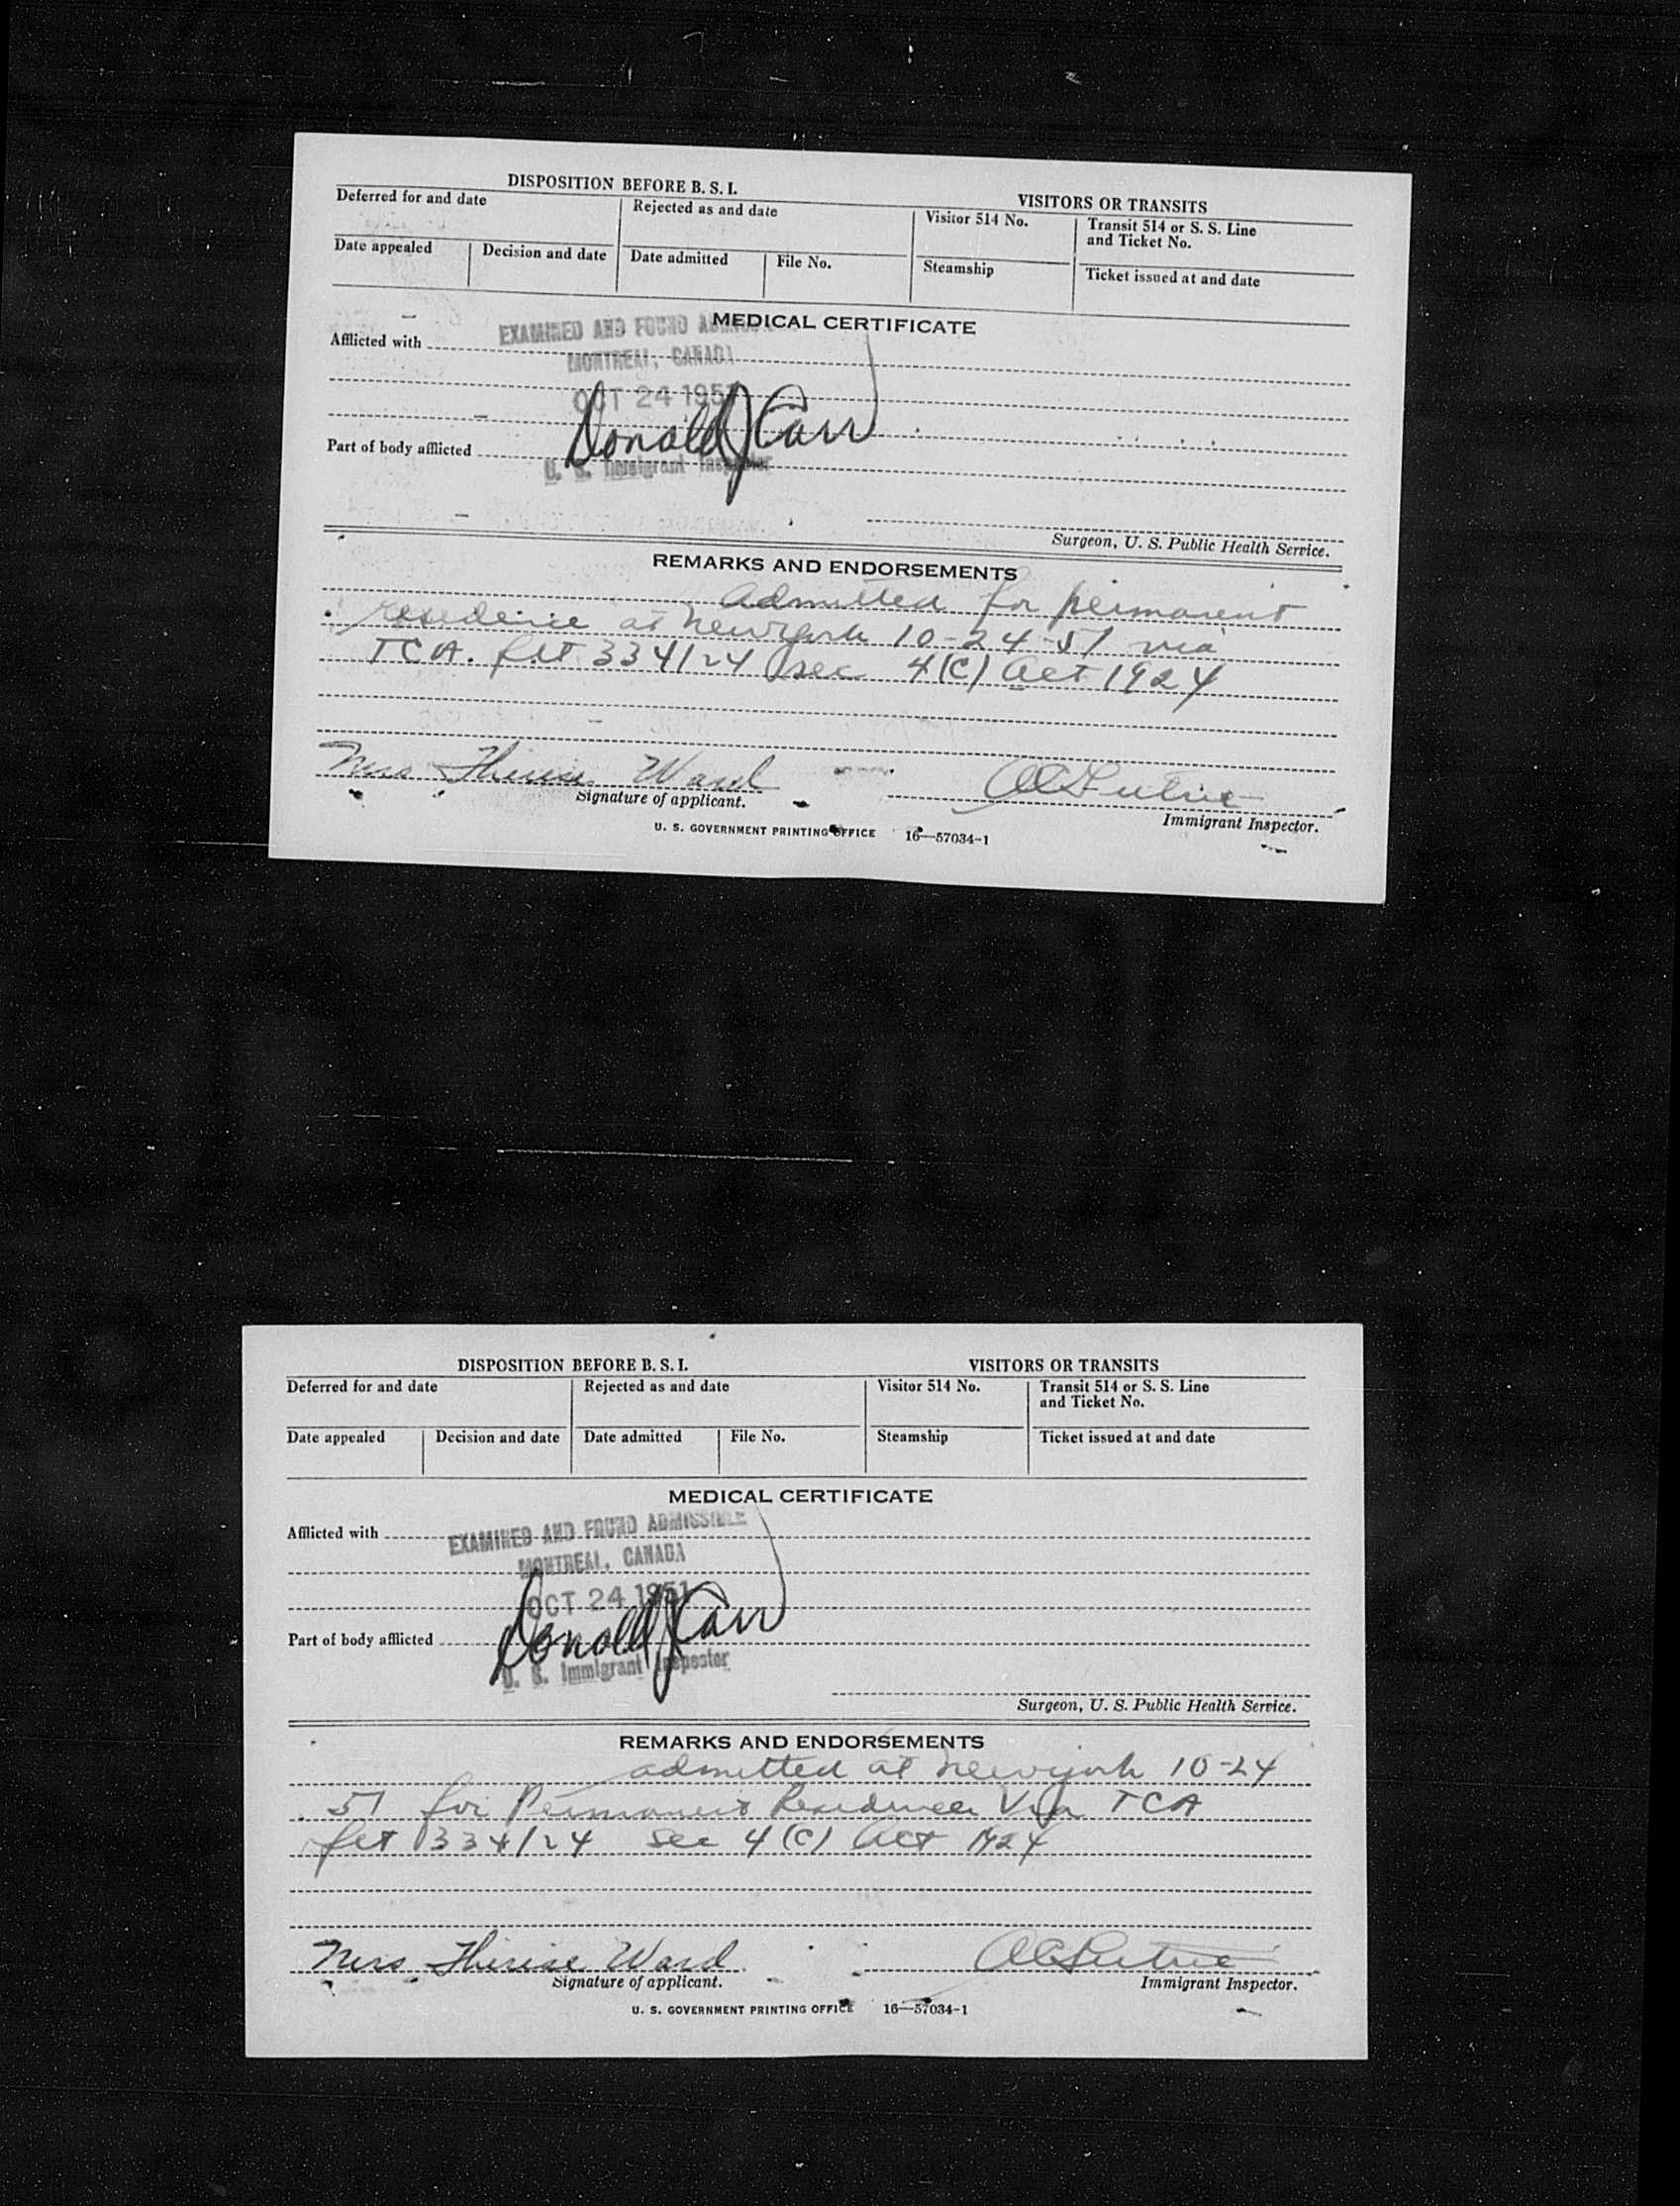 DISPOSITION BEFORE B. S. I.
VISITORS OR TRANSITS
Deferred for and date
Rejected as and date
Visitor 514 No.
Transit 514 or S. S. Line
and Ticket No.
Date appealed
Decision and date
Date admitted
File No.
Steamship
Ticket issued at and date
MEDICAL CERTIFICATE
Afflicted with
EXAMINED AND FOUND
MONTREAL, CANADA
OCT 24 1951
Donald J Carr
Part of body afflicted
U. S. Immigrant Inspector
Surgeon, U. S. Public Health Service.
REMARKS AND ENDORSEMENTS
Admitted for permanent
residence at New York 10-24-51 via
TCA. flt 334/24 sec 4(C) Act 1924
Mrs Therese Ward
Signature of applicant.
Immigrant Inspector.
U. S. GOVERNMENT PRINTING OFFICE 16—57034-1
DISPOSITION BEFORE B. S. I.
VISITORS OR TRANSITS
Deferred for and date
Rejected as and date
Visitor 514 No.
Transit 514 or S. S. Line
and Ticket No.
Date appealed
Decision and date
Date admitted
File No.
Steamship
Ticket issued at and date
MEDICAL CERTIFICATE
Afflicted with
EXAMINED AND FOUND ADMISSIBLE
MONTREAL, CANADA
OCT 24 1951
Donald J Carr
Part of body afflicted
U. S. Immigrant Inspector
Surgeon, U. S. Public Health Service.
REMARKS AND ENDORSEMENTS
admitted at New York 10-24
51 for Permanent Residence Via TCA
flt 334/24 sec 4(C) Act 1924
Mrs Therese Ward
Signature of applicant.
Immigrant Inspector.
U. S. GOVERNMENT PRINTING OFFICE 16—57034-1